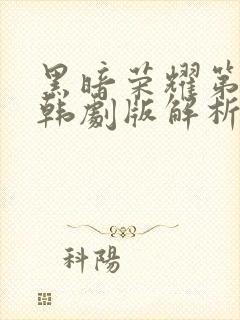 黑暗荣耀第
韩劇版解析
科陽